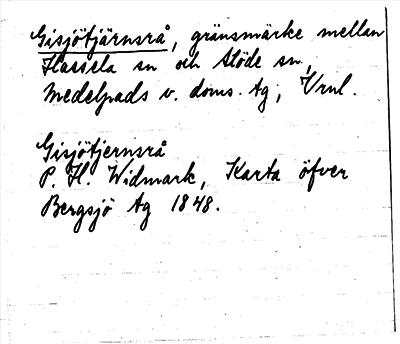 Gisjötjärnsrå, gränsmärke mellan
Hassela sn och Stöde sn,
Medelpads v. doms. tg, Vrnl.
Gisjötjernsrå
P. H. Widmark, Karta öfver
Bergsjö tg 1848.